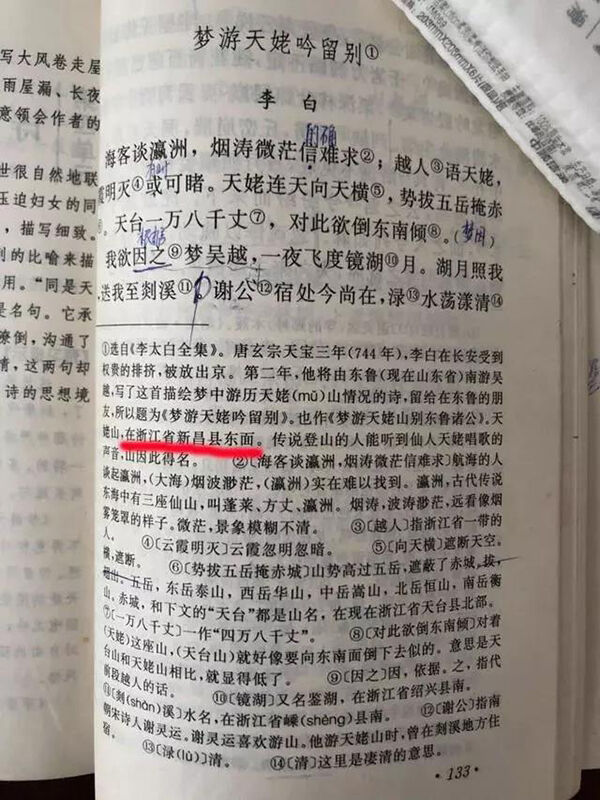 写大风卷走屋
雨屋漏、长夜
意领会作者的
世很自然地联
压迫妇女的同
，描写细致。
到的比喻来描
用。“同是天
是名句。它承
潦倒，沟通了
情，这两句却
诗的思想境
梦游天姥吟留别①
李 白
的确
海客谈瀛洲，烟涛微茫信难求②；越人③语天姥，
霞明灭④或可睹。天姥连天向天横⑤，势拔五岳掩赤
。天台一万八千丈⑦，对此欲倒东南倾⑧。
我欲因之⑨梦吴越，一夜飞度镜湖⑩月。湖月照我
送我至剡溪⑪。谢公⑫宿处今尚在，渌⑬水荡漾清⑭
①选自《李太白全集》。唐玄宗天宝三年(744年)，李白在长安受到
权贵的排挤，被放出京。第二年，他将由东鲁(现在山东省)南游吴
越，写了这首描绘梦中游历天姥(mǔ)山情况的诗，留给在东鲁的朋
友，所以题为《梦游天姥吟留别》。也作《梦游天姥山别东鲁诸公》。天
姥山，在浙江省新昌县东面。传说登山的人能听到仙人天姥唱歌的
声音，山因此得名。 ②〔海客谈瀛洲，烟涛微茫信难求〕航海的人
谈起瀛洲，(大海)烟波渺茫，(瀛洲)实在难以找到。瀛洲，古代传说
东海中有三座仙山，叫蓬莱、方丈、瀛洲。烟涛，波涛渺茫，远看像烟
雾笼罩的样子。微茫，景象模糊不清。 ③〔越人〕指浙江省一带的
人。 ④〔云霞明灭〕云霞忽明忽暗。 ⑤〔向天横〕遮断天空。
横，遮断。 ⑥〔势拔五岳掩赤城〕山势高过五岳，遮蔽了赤城。拔，
超出。五岳，东岳泰山，西岳华山，中岳嵩山，北岳恒山，南岳衡
山。赤城，和下文的“天台”都是山名，在现在浙江省天台县北部。
⑦〔一万八千丈〕一作“四万八千丈”。 ⑧〔对此欲倒东南倾〕对着
(天姥)这座山，(天台山)就好像要向东南面倒下去似的。意思是天
台山和天姥山相比，就显得低了。 ⑨〔因之〕因，依据。之，指代
前段越人的话。 ⑩〔镜湖〕又名鉴湖，在浙江省绍兴县南。
⑪〔剡(shàn)溪〕水名，在浙江省嵊(shèng)县南。 ⑫〔谢公〕指南
朝宋诗人谢灵运。谢灵运喜欢游山。他游天姥山时，曾在剡溪地方住
宿。 ⑬〔渌(lù)〕清。 ⑭〔清〕这里是凄清的意思。
·133·